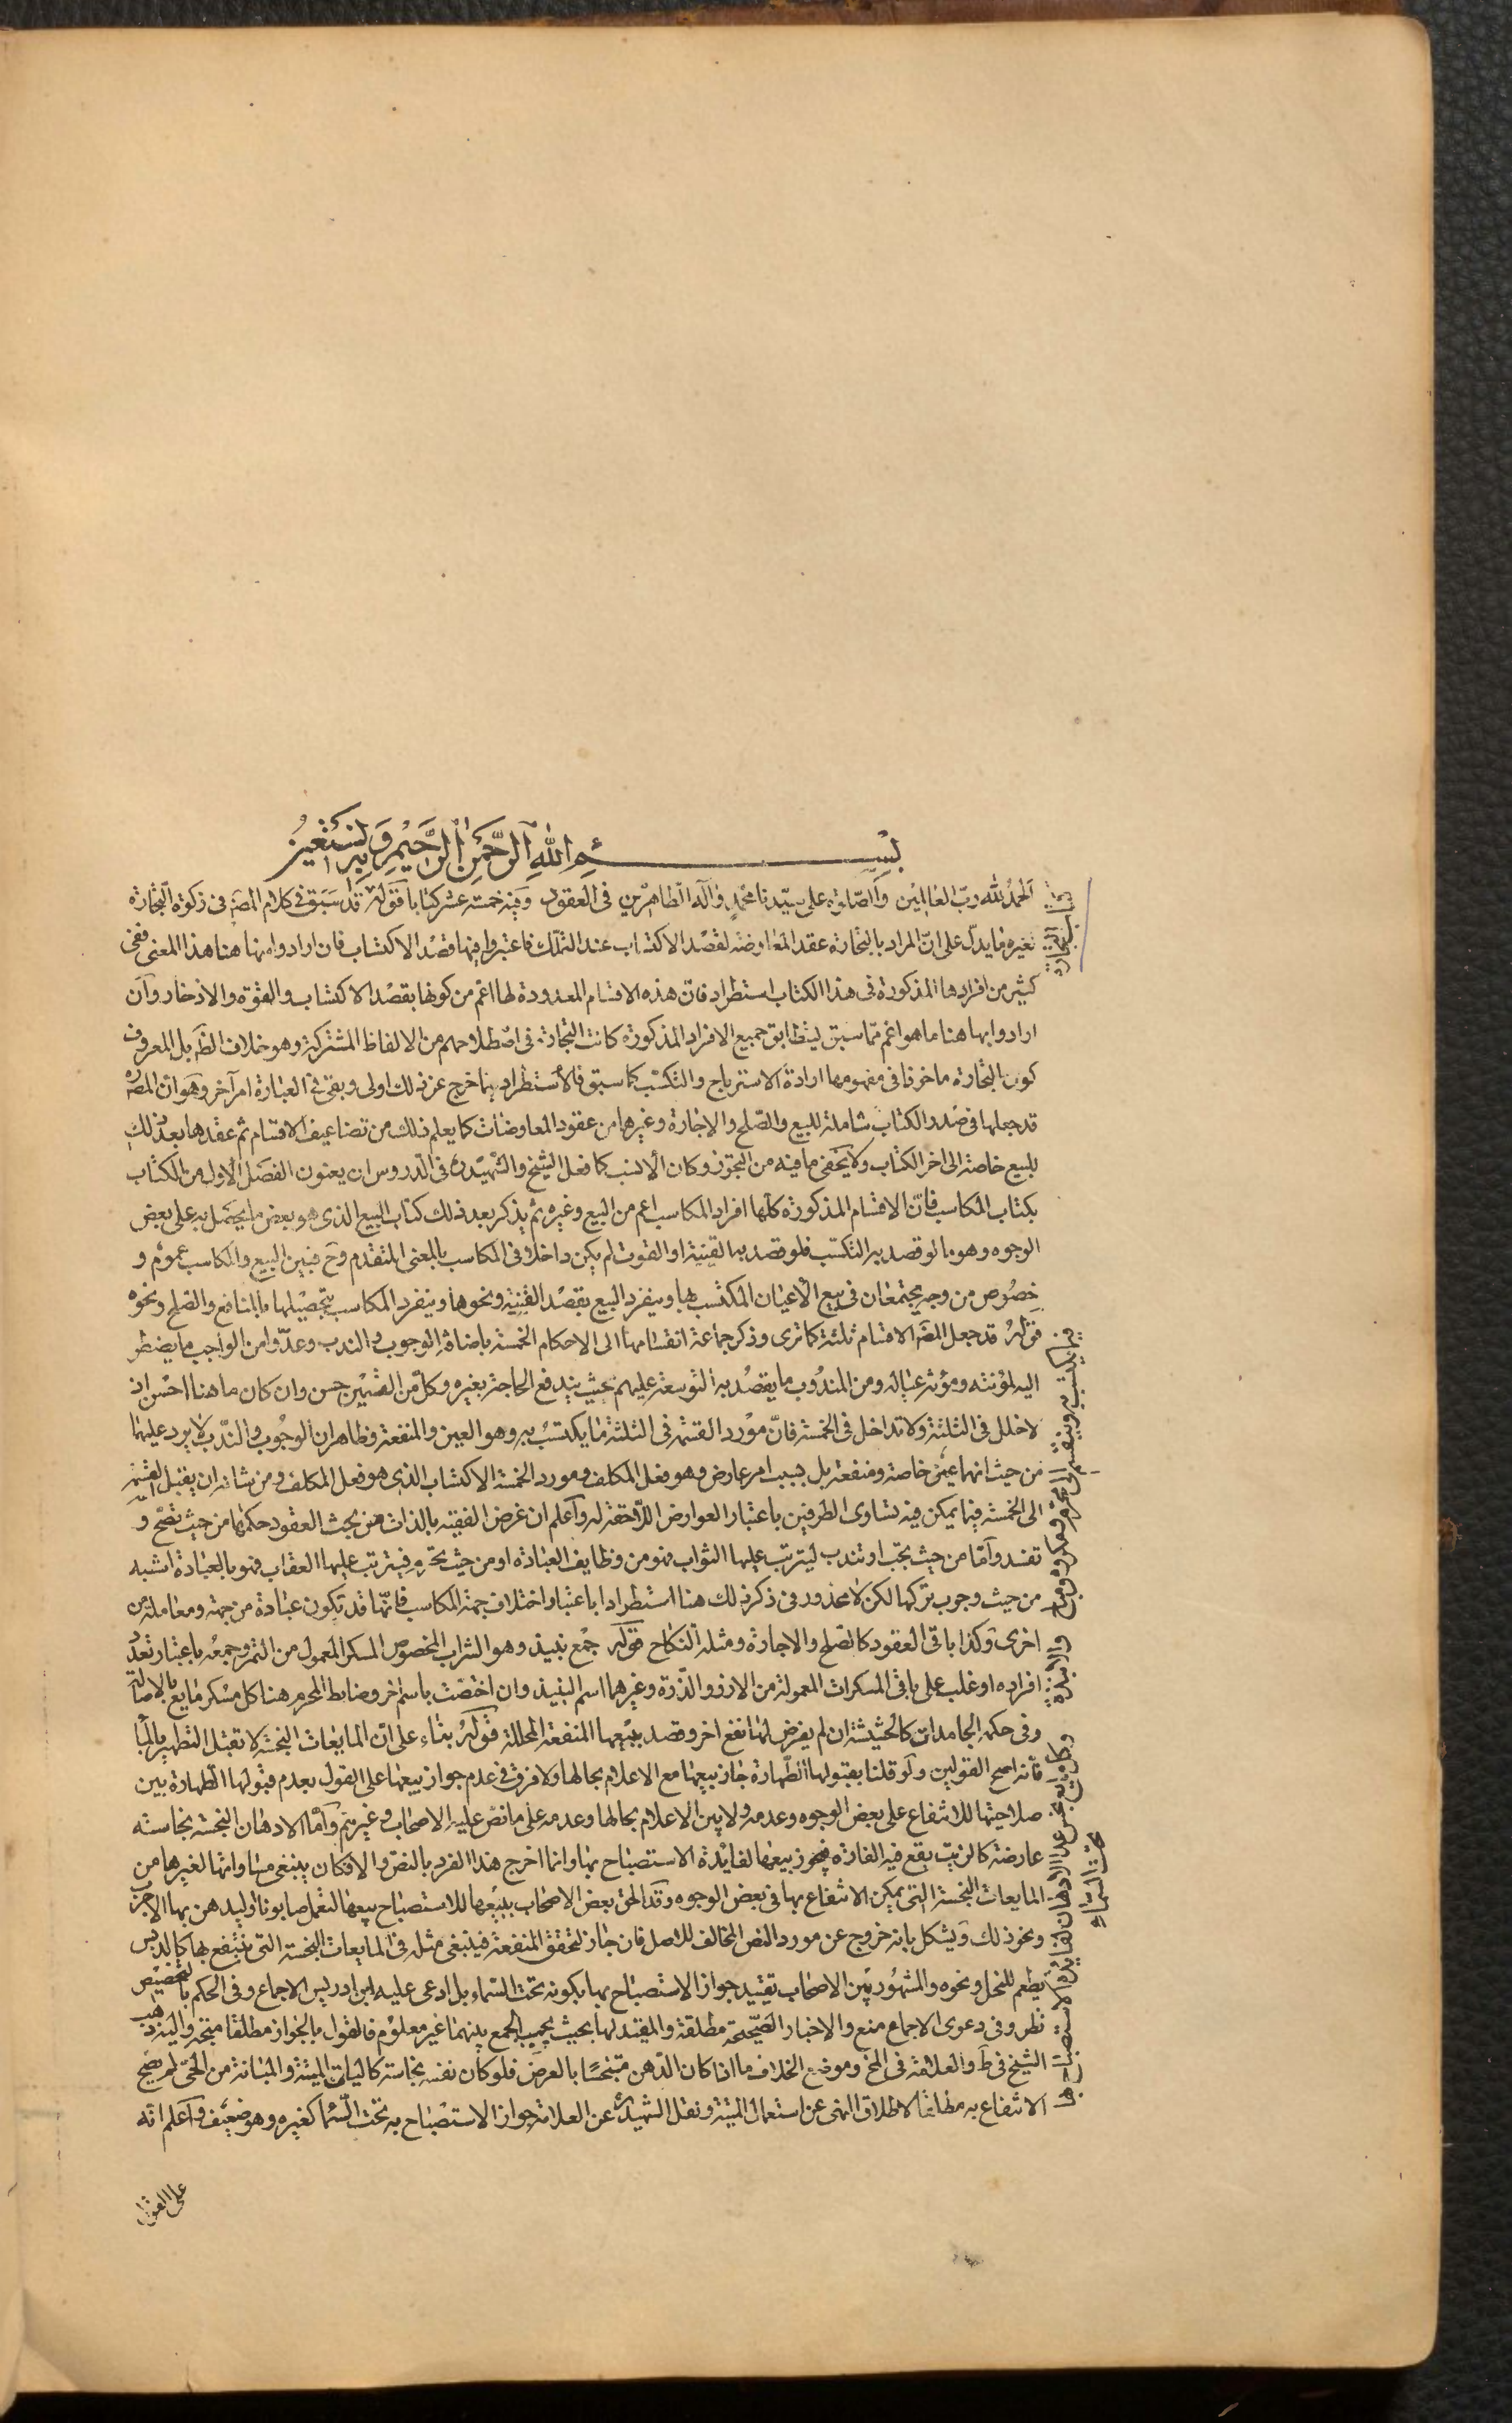 بسم الله الرحمن الرحيم وبه نستعين
الحمد لله رب العالمين والصلوة على سيدنا محمد واله الطاهرين في العقود وفيه خمسة عشر كتابا قوله قد سبق في كلام المصَ في زكوة التجارة
وغيره ما يدل على ان المراد بالتجارة عقد المعاوضة لقصد الاكتساب عند التملك فاعتبروا فيها قصد الاكتساب فان ارادوا منها هنا هذا المعنى ففي
كثير من افرادها المذكورة في هذا الكتاب استطراد فان هذه الاقسام المعدودة لها اعم من كونها بقصد الاكتساب والقوة والادخار وان
ارادوا بها هنا ما هو اعم مما سبق ليطابق جميع الافراد المذكورة كانت التجارة في اصطلاحهم من الالفاظ المشتركة وهو خلاف الظَ بل المعروف
كون التجارة ماخوذا في مفهومها ارادة الاسترباح والتكسب كما سبق فالأستطراد بما خرج عن ذلك اولى وبقى في العبارة امر آخر وهو ان المصَ ره
قد جعلها في صدر الكتاب شاملة للبيع والصلح والاجارة وغيرها من عقود المعاوضات كما يعلم ذلك من تضاعيف الاقسام ثم عقدها بعد ذلك
للبيع خاصة الى اخر الكتاب ولا يخفى ما فيه من التجوز وكان الانسب كما فعل الشيخ والشهيد ره في الدروس ان يعنون الفصل الاول من الكتاب
بكتاب المكاسب فان الاقسام المذكورة كلها افراد المكاسب اعم من البيع وغيره ثم يذكر بعد ذلك كتاب البيع الذي هو بعض ما يحتمل به على بعض
الوجوه وهو ما لو قصد به التكسب فلو قصد به القنية او القوت لم يكن داخلا في المكاسب بالمعنى المتقدم وحَ فبين البيع والمكاسب عموم و
خصوص من وجه يجتمعان في بيع الاعيان المكتسب بها وينفرد البيع بقصد القنية ونحوها وينفرد المكاسب بتحصيلها بالمنافع والصلح ونحوه
قوله قد جعل المصَ الاقسام ثلثة كما ترى وذكر جماعة انقسامها الى الاحكام الخمسة باضافة الوجوب والندب وعدّوا من الواجب ما يضطر
اليه لمؤنته ومؤنة عياله ومن المندوب ما يقصد به التوسعة عليهم بحيث يندفع الحاجة بغيره وكل من القسمين حسن وان كان ما هنا احسن اذ
لا خلل في الثلثة ولا تداخل في الخمسة فان مورد القسمة في الثلثة ما يكتسب به وهو العين والمنفعة وظاهر ان الوجوب والندب لا يرد عليهما
من حيث انهما عين خاصة ومنفعة بل بسبب امر عارض وهو فعل المكلف ومورد الخمسة الاكتساب الذي هو فعل المكلف ومن شانه ان يقبل القسمة
الى الخمسة فيما يمكن فيه تساوى الطرفين باعتبار العوارض اللاحقة له واعلم ان غرض الفقيه بالذات من بحث العقود حكمها من حيث تصح و
تفسد واما من حيث يجب او تندب ليترتب عليها الثواب فهو من وظايف العبادة او من حيث يحرم فيترتب عليها العقاب فهو بالعبادة اشبه
من حيث وجوب تركها لكن لا محذور في ذكر ذلك هنا استطرادا باعتبار اختلاف جهة المكاسب فانها قد تكون عبادة من جهة ومعاملة من
اخرى وكذا باقى العقود كالصلح والاجارة ومثله النكاح قوله جمع نبيذ وهو الشراب المخصوص المسكر المعمول من التمر وجمعه باعتبار تعدد
افراده او غلب على باقى المسكرات المعمولة من الارز والذرة وغيرهما اسم النبيذ وان اختصت باسم اخر وضابط المحرم هنا كل مسكر مايع بالاصالة
وفي حكمه الجامدات كالحشيشة ان لم يفرض لها نفع اخر وقصد ببيعها المنفعة المحللة قوله بناء على ان المايعات النجسة لا تقبل التطهير بالماء
فانه اصح القولين ولو قلنا بقبولها الطهارة جاز بيعها مع الاعلام بحالها ولا فرق في عدم جواز بيعها على القول بعدم قبولها الطهارة بين
صلاحيتها للانتفاع على بعض الوجوه وعدمه ولا بين الاعلام بحالها وعدمه على ما نص عليه الاصحاب وغيرهم واما الادهان النجسة بنجاسته
عارضة كالزيت يقع فيه الفارة فيجوز بيعها لفايدة الاستصباح بها وانما اخرج هذا الفرد بالنص والا فكان ينبغى مساواتها لغيرها من
المايعات النجسة التى يمكن الانتفاع بها في بعض الوجوه وقد الحق بعض الاصحاب ببيعها للاستصباح بيعها لتعمل صابونا او ليدهن بها الاجرب
ونحو ذلك ويشكل بانه خروج عن مورد النص المخالف للاصل فان جاز لتحقق المنفعة فينبغى مثله في المايعات النجسة التى ينتفع بها كالدبس
يطعم للنحل ونحوه والمشهور بين الاصحاب تقييد جواز الاستصباح بها بكونه تحت السماء بل ادعى عليه ابن ادريس الاجماع وفي الحكم بالتخصيص
نظر وفي دعوى الاجماع منع والاخبار الصحيحة مطلقة والمقيد لها بحيث يجب الجمع بينهما غير معلوم فالقول بالجواز مطلقا متجه واليه ذهب
الشيخ في طَ والعلامة في المخ وموضع الخلاف ما اذا كان الدهن متنجسا بالعرض فلو كان نفسه نجاسة كاليات الميتة والمبانة من الحى لم يصح
الانتفاع به مطلقا لاطلاق النهى عن استعمال الميتة ونقل الشهيد ره عن العلامة جواز الاستصباح به تحت السماء كغيره وهو ضعيف واعلم انه
على القول
كتاب التجارة
فيما يكتسب به وينقسم الى محرم ومكروه ومباح
والانبذة
وكل مايع نجس عدا الادهان لفايدة الاستصباح بها
تحت السماء